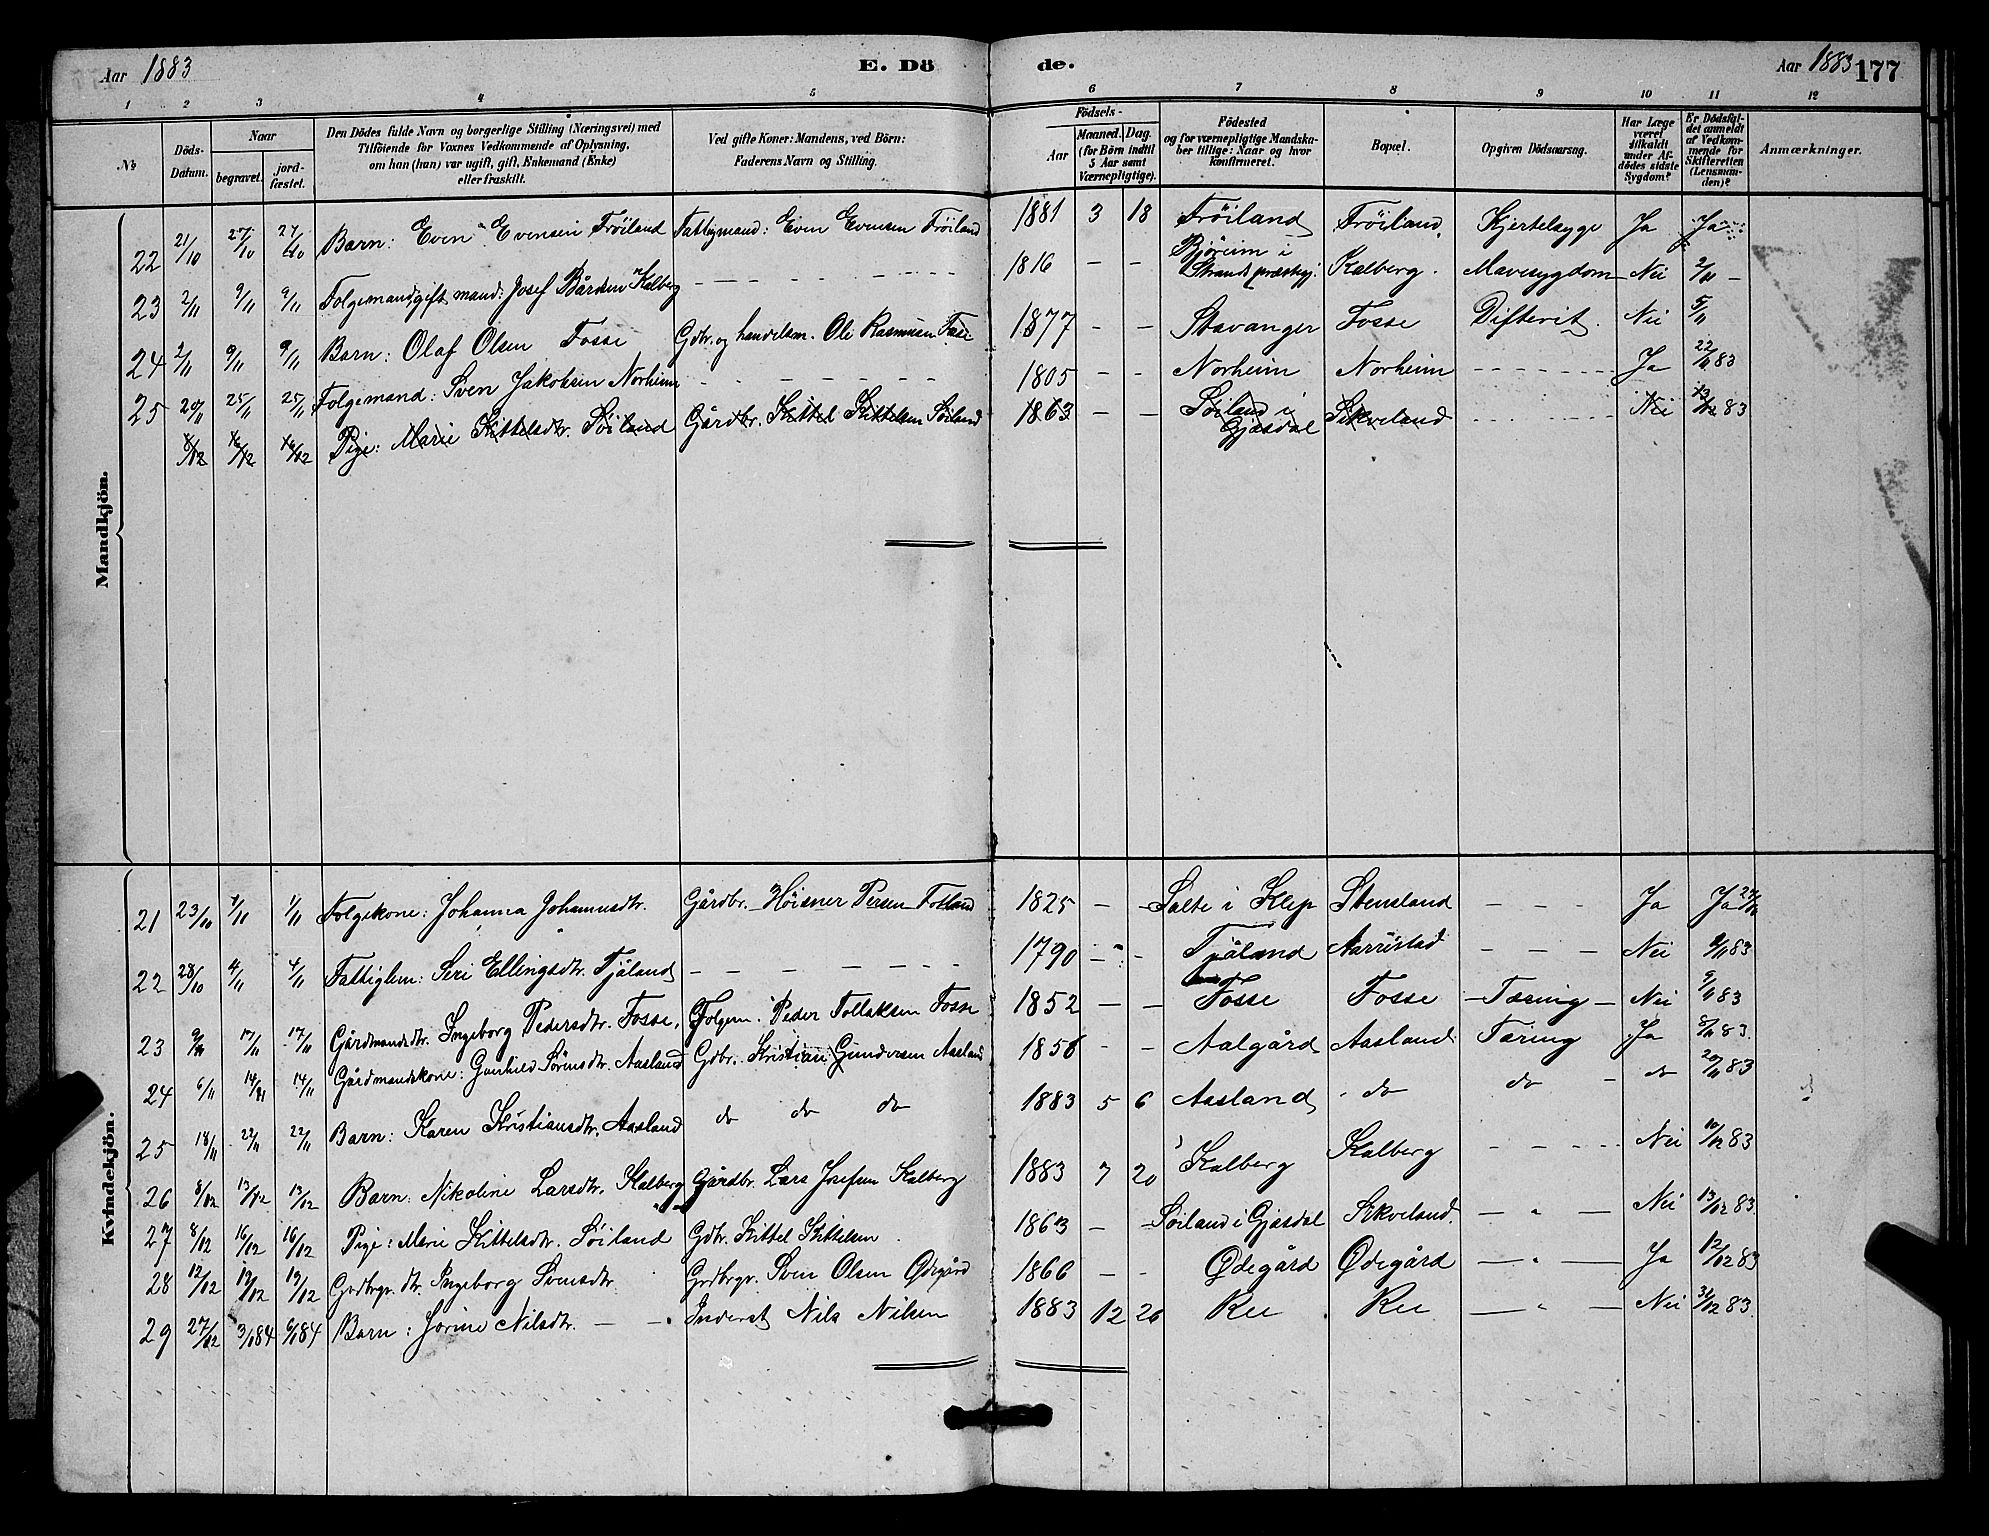 Aar 1883 E. Dö de. Aar 1883 177
1 2 3 4 5 6 7 8 9 10 11 12
No
Döds-Datum.
Naar
begravet. jordfæstet.
Den Dödes fulde Navn og borgerlige Stilling (Næringsvei) med Tilföiende for Voxnes Vedkommende af Oplysning, om han (hun) var ugift, gift, Enkemand (Enke) eller fraskilt.
Ved gifte Koner: Mandens, ved Börn: Faderens Navn og Stilling.
Födsels-
Aar Maaned. Dag. (for Börn indtil 5 Aar samt Værnepligtige).
Födested og for værnepligtige Mandskaber tillige: Naar og hvor konfirmeret.
Bopæl.
Opgiven Dödsaarsag.
Har Læge været tilkaldt under Afdödes sidste Sygdom?
Er Dödsfaldet anmeldt af Vedkommende for Skifteretten (Lensmanden)?
Anmærkninger.
Mandkjön.
22 21/10 27/10 27/10 Barn: Even Evensen Fröiland Fattigmand: Even Evensen Fröiland 1881 3 18 Fröiland Fröiland Kjertelsyge Ja Ja
23 2/11 9/11 9/11 Folgemand, gift mand: Josef Bårdsen Kalberg – – – 1816 – – Bjøreim i Strands præstegj. Kalberg. Mavesygdom Nei 2/11 –
24 2/11 9/11 9/11 Barn: Olaf Olsen Fosse Gdbr. og handelsm. Ole Rasmusen Fosse 1877 – – Stavanger Fosse Difterit. Nei 5/11
25 20/11 25/11 25/11 Folgemand: Sven Jakobsen Norheim – – – 1805 – – Norheim Norheim – – – Ja 22/11 83
8/12 16/12 16/12 Pige: Marie Kittelsdtr. Söiland Gårdbr. Kittel Kittelsen Söiland 1863 – – Söiland i Gjæsdal Skveland – – – Nei 13/12 83
Kvindekjön.
21 23/10 1/11 1/11 Folgekone: Johanna Johannesdtr. Gårdbr. Höisner Persen Folland 1825 – – Salte i Klep Stensland – – – Ja Ja
22 28/10 4/11 4/11 Fattiglem: Seri Ellingsdtr. Tjåland – – – 1790 – – Tjåland Aarrestad – – – Nei 9/11 83
23 9/11 17/11 17/11 Gårdmandsdtr. Ingeborg Pedersdtr. Fosse. Folgem. Peder Tollaksen Fosse 1852 – – Fosse Fosse – Tæring – Nei 9/11 83
24 6/11 14/11 14/11 Gårdmandskone: Gunhild Sörensdtr. Aasland Gdbr. Kristian Gundersen Aasland 1858 – – Aalgård Aasland Tæring Ja 8/11 83.
25 18/11 22/11 22/11 Barn: Karen Kristiansdtr. Aasland do do do 1883 5 6 Aasland do do – do 20/11 83
26 8/12 13/12 13/12 Barn: Nikoline Larsdtr. Kalberg Gårdbr. Lars Josefsen Kalberg 1883 7 20 Kalberg Kalberg – – – Nei 10/12 83
27 8/12 16/12 16/12 Pige: Marie Kittelsdtr. Söiland Gdbr. Kittel Kittelsen 1863 – – Söiland i Gjæsdal Skveland. – „ – Nei 13/12 83
28 12/12 19/12 19/12 Grdbrgr. dtr. Ingeborg Svensdtr. Grdbrgr. Sven Olsen Ødegård 1866 – – Ødegård Ødegård – „ – Ja 12/12 83
29 27/12 3/1 84 6/1 84 Barn: Jorine Nilsdtr. – – Inderst Nils Nilsen 1883 12 26 Ree Ree – „ – Nei 31/12 83.